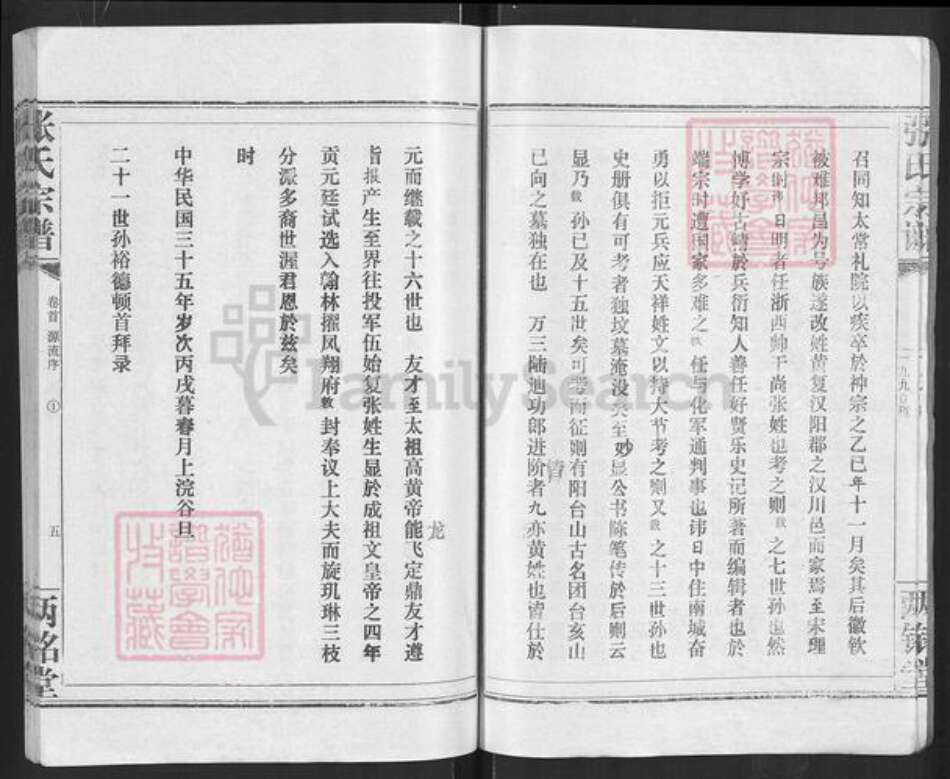 张氏宗谱
召同知太常礼院以疾卒於神宗之乙巳年十一月矣其后徽钦
被难邦昌为号族遂改姓黄复汉阳郡之汉川邑而家焉至宋理
宗时讳日明者任浙西帅干尚张姓也考之则 之七世孙也然
博学好古 於兵衍知人善任好贤乐史记所著而编辑者也於
端宗时遭国家多难之 任与化军通判事也讳日中住南城奋
勇以拒元兵应天祥姓文以特大节考之则又 之十三世孙也
史册俱有可考者独坟墓淹没矣至妙显公书陈笔传於后则云
显乃 孙已及十五世矣可 而征则有阳台山古名团台亥山
巳向之墓独在也 万三陆迪功郎进阶者九亦黄姓也皆仕於
元而继载之十六世也 友才至太祖高黄帝能飞定鼎友才遵
龙
指报产生至界往投军伍始复张姓生显於成祖文皇帝之四年
贡元廷试选入翰林擢凤翔府教封奉议上大夫而旋玑琳三枝
分派多裔世渥君恩於兹矣
时
中华民国三十五年岁次丙戌暮春月上浣谷旦
二十一世孙裕德顿首拜录
张氏宗谱
卷首 源流序
五
两铭堂
FamilySearch